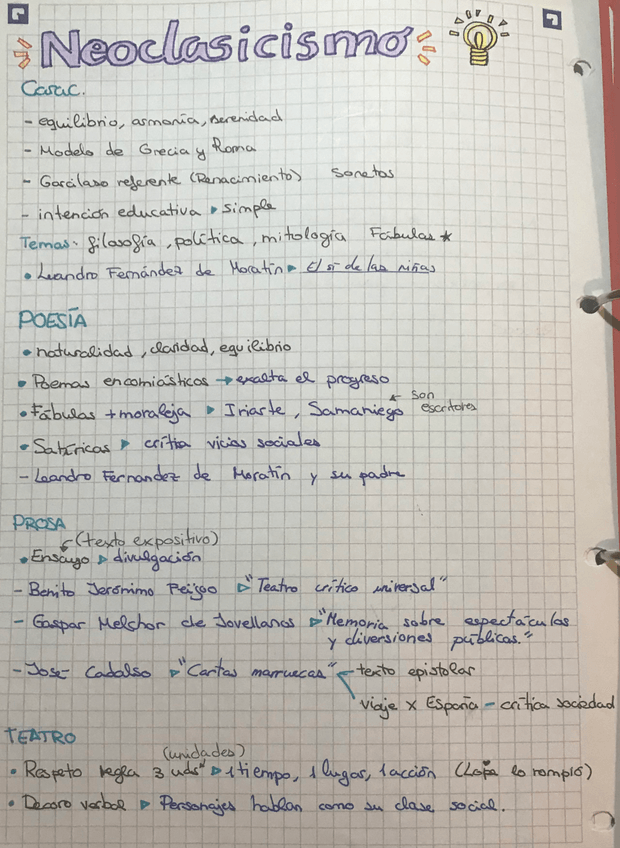 Neoclasicismo
Carac.
- equilibrio, armonía, serenidad
- Modelo de Grecia y Roma
- Garcilaso referente (Renacimiento) Sonetos
- intención educativa ▹ simple
Temas: filosofía, política, mitología Fábulas *
• Leandro Fernández de Moratín ▹ El sí de las niñas
POESÍA
• naturalidad, claridad, equilibrio
• Poemas encomiásticos → exalta el progreso
• Fábulas + moraleja ▹ Iriarte, Samaniego ← son escritores
• Satíricas ▹ critia vicios sociales
- Leandro Fernandez de Moratín y su padre
PROSA
(texto expositivo)
• Ensayo ▹ divulgación
- Benito Jerónimo Feijoo ▹ "Teatro crítico universal"
- Gaspar Melchor de Jovellanos ▹ "Memoria sobre espectáculos
y diversiones públicas."
- José Cadalso ▹ "Cartas marruecas" texto epistolar
viaje x España - crítica sociedad
TEATRO
(unidades)
• Respeto regla 3 uds" ▹ 1 tiempo, 1 lugar, 1 acción (Lope lo rompió)
• Decoro verbal ▹ Personajes hablan como su clase social.